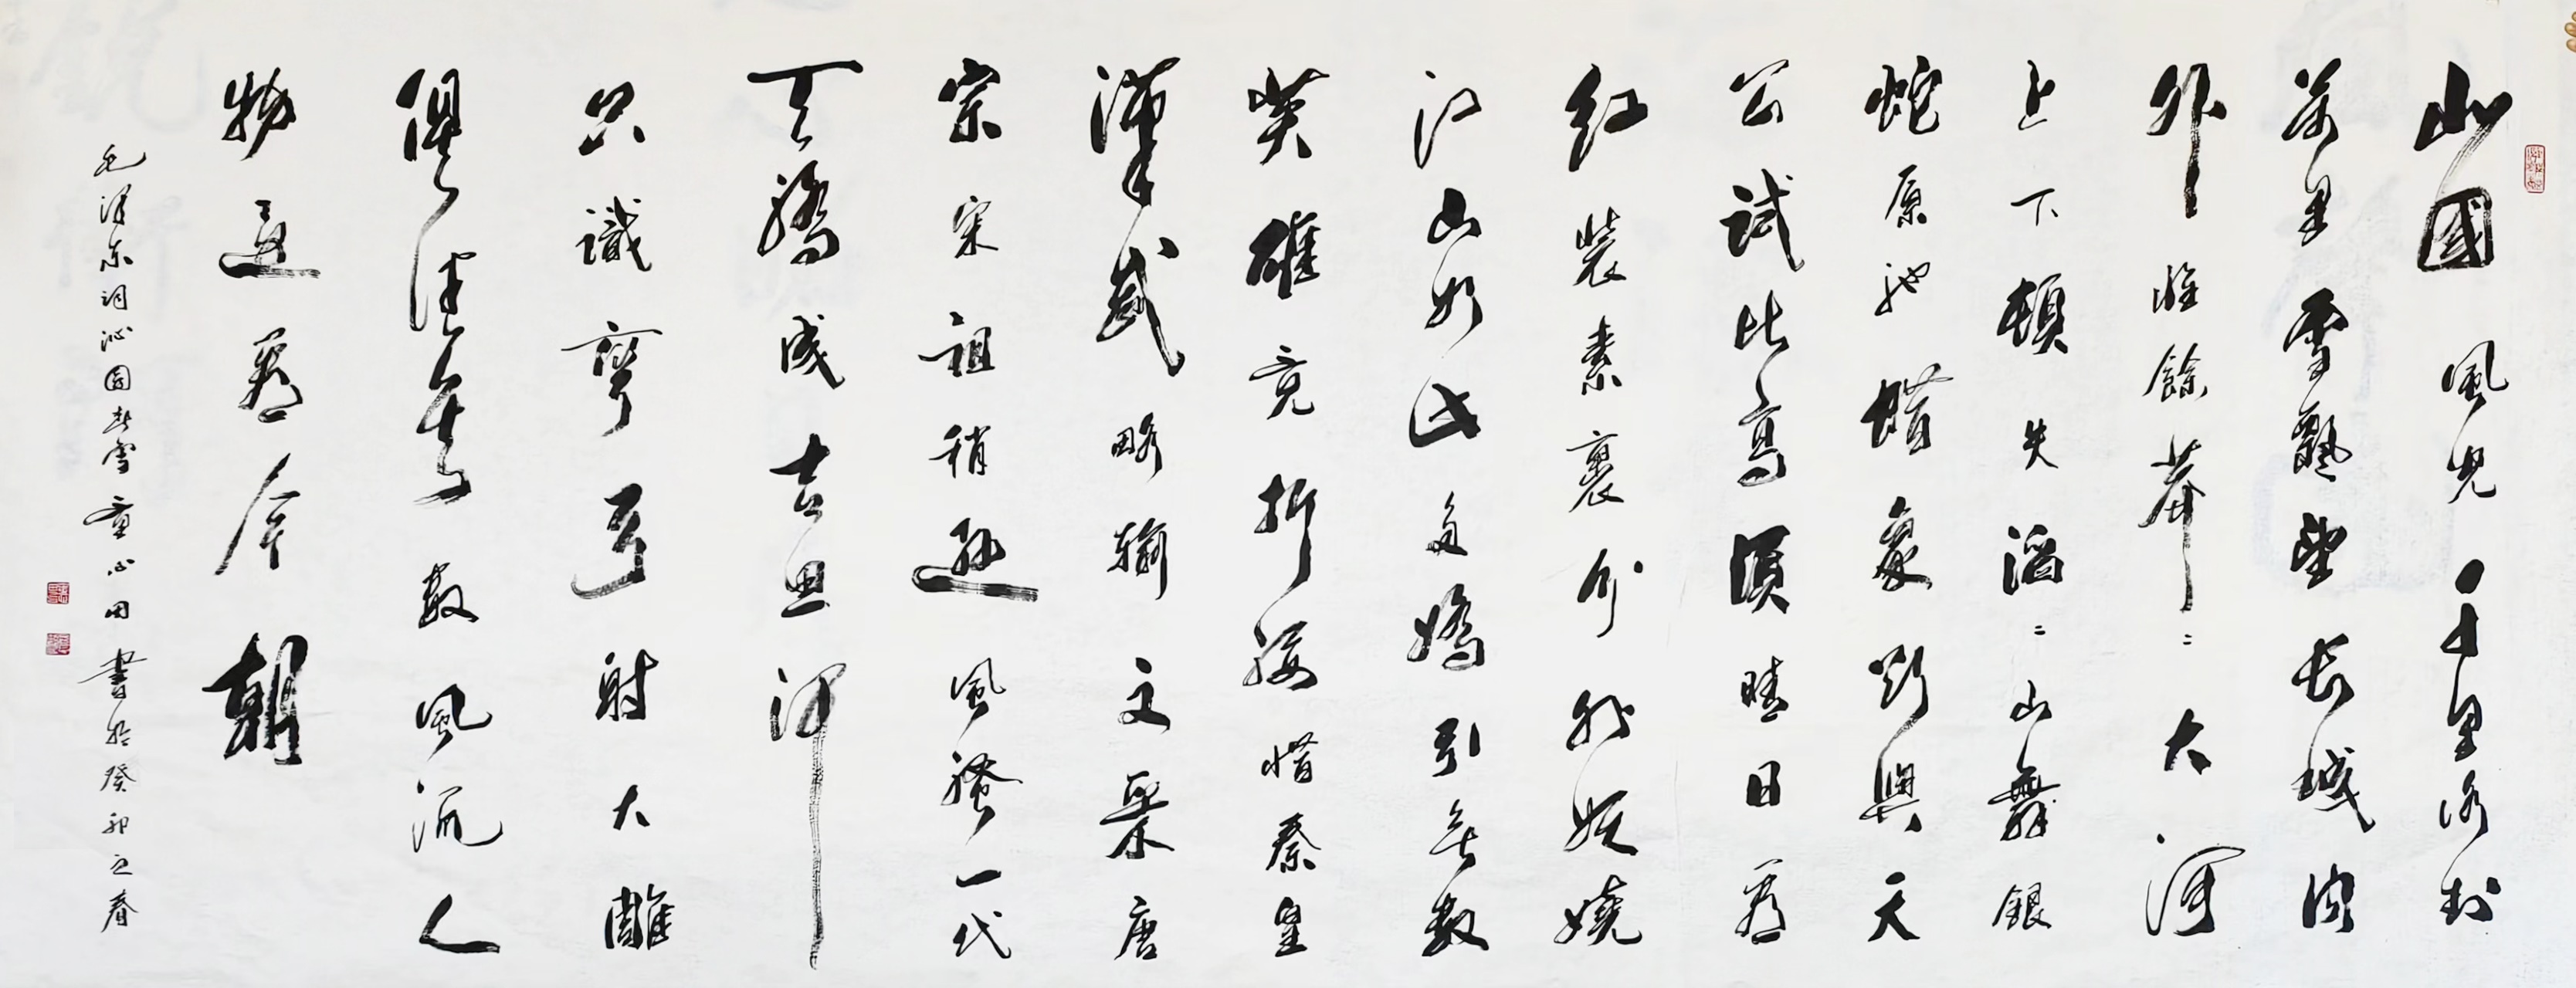 北國風光千里冰封
萬里雪飄望长城內
外惟餘莽〻大河
上下頓失滔〻山舞銀
蛇原馳蜡象欲與天
公試比高須晴日看
紅裝素裹分外妖嬈
江山如此多嬌引無數
英雄竞折腰惜秦皇
漢武略輸文采唐
宗宋祖稍遜風騷一代
天驕成吉思汗
只識彎弓射大雕
俱往矣數風流人
物還看今朝
毛澤东詞沁園春雪童心田書於癸卯之春